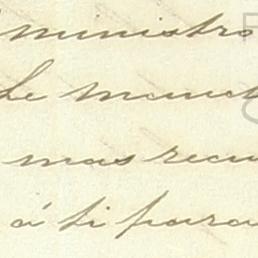 ministro
Le mand
mas recu
á ti para